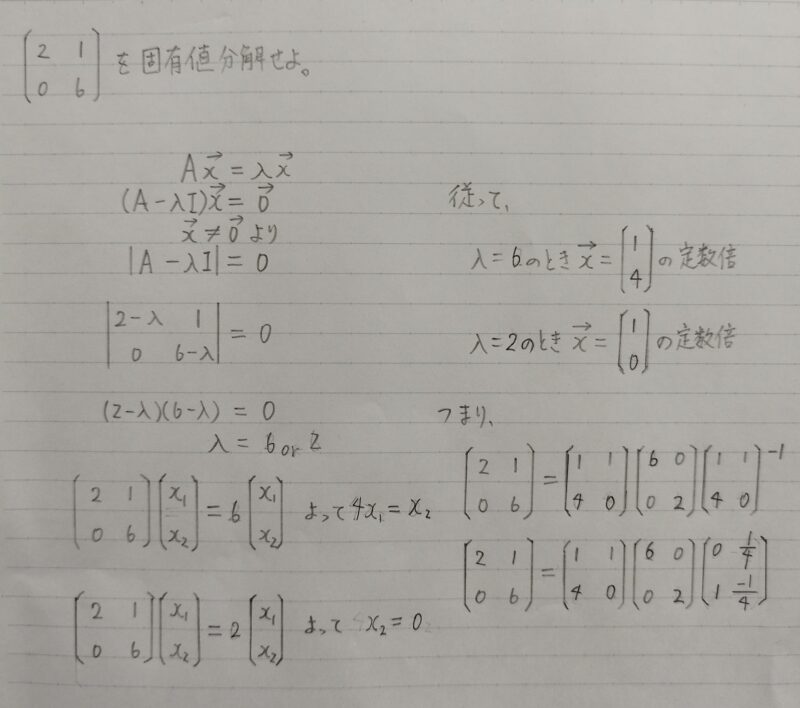 (2 1
0 6) を固有値分解せよ。
Ax⃗ = λx⃗
(A-λI)x⃗ = 0⃗
x⃗ ≠ 0⃗ より
|A-λI| = 0
|2-λ 1
0 6-λ| = 0
(2-λ)(6-λ) = 0
λ = 6 or 2
(2 1
0 6)(x₁
x₂) = 6(x₁
x₂) よって 4x₁ = x₂
(2 1
0 6)(x₁
x₂) = 2(x₁
x₂) よって x₂ = 0
従って、
λ=6のとき x⃗ = (1
4) の定数倍
λ=2のとき x⃗ = (1
0) の定数倍
つまり、
(2 1
0 6) = (1 1
4 0)(6 0
0 2)(1 1
4 0)⁻¹
(2 1
0 6) = (1 1
4 0)(6 0
0 2)(0 1/4
1 -1/4)